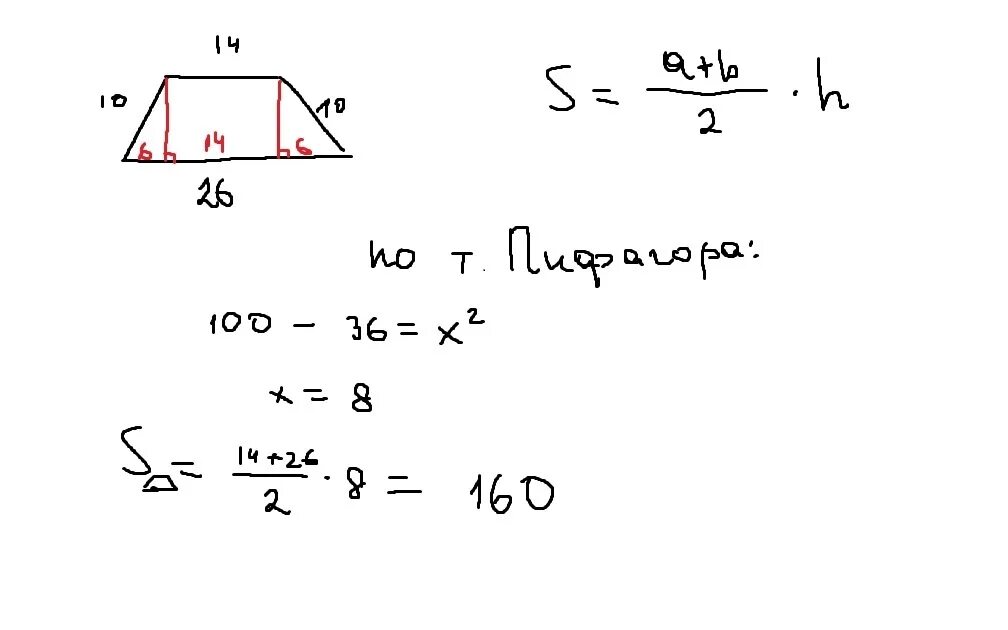 14
10 10
6 14 6
26
S = a+b/2 · h
по т. Пифагора:
100 - 36 = x²
x = 8
S⏢ = 14+26/2 · 8 = 160